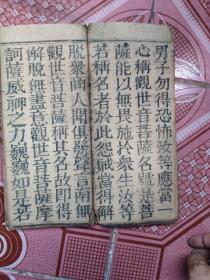 男子勿得恐怖汝等應當一
心稱觀世音菩薩名號是菩
薩能以無畏施於衆生汝等
若稱名者於此怨賊當得解
脫衆商人聞俱發聲言南無
觀世音菩薩稱其名故即得
解脫無盡意觀世音菩薩摩
訶薩威神之力巍巍如是若